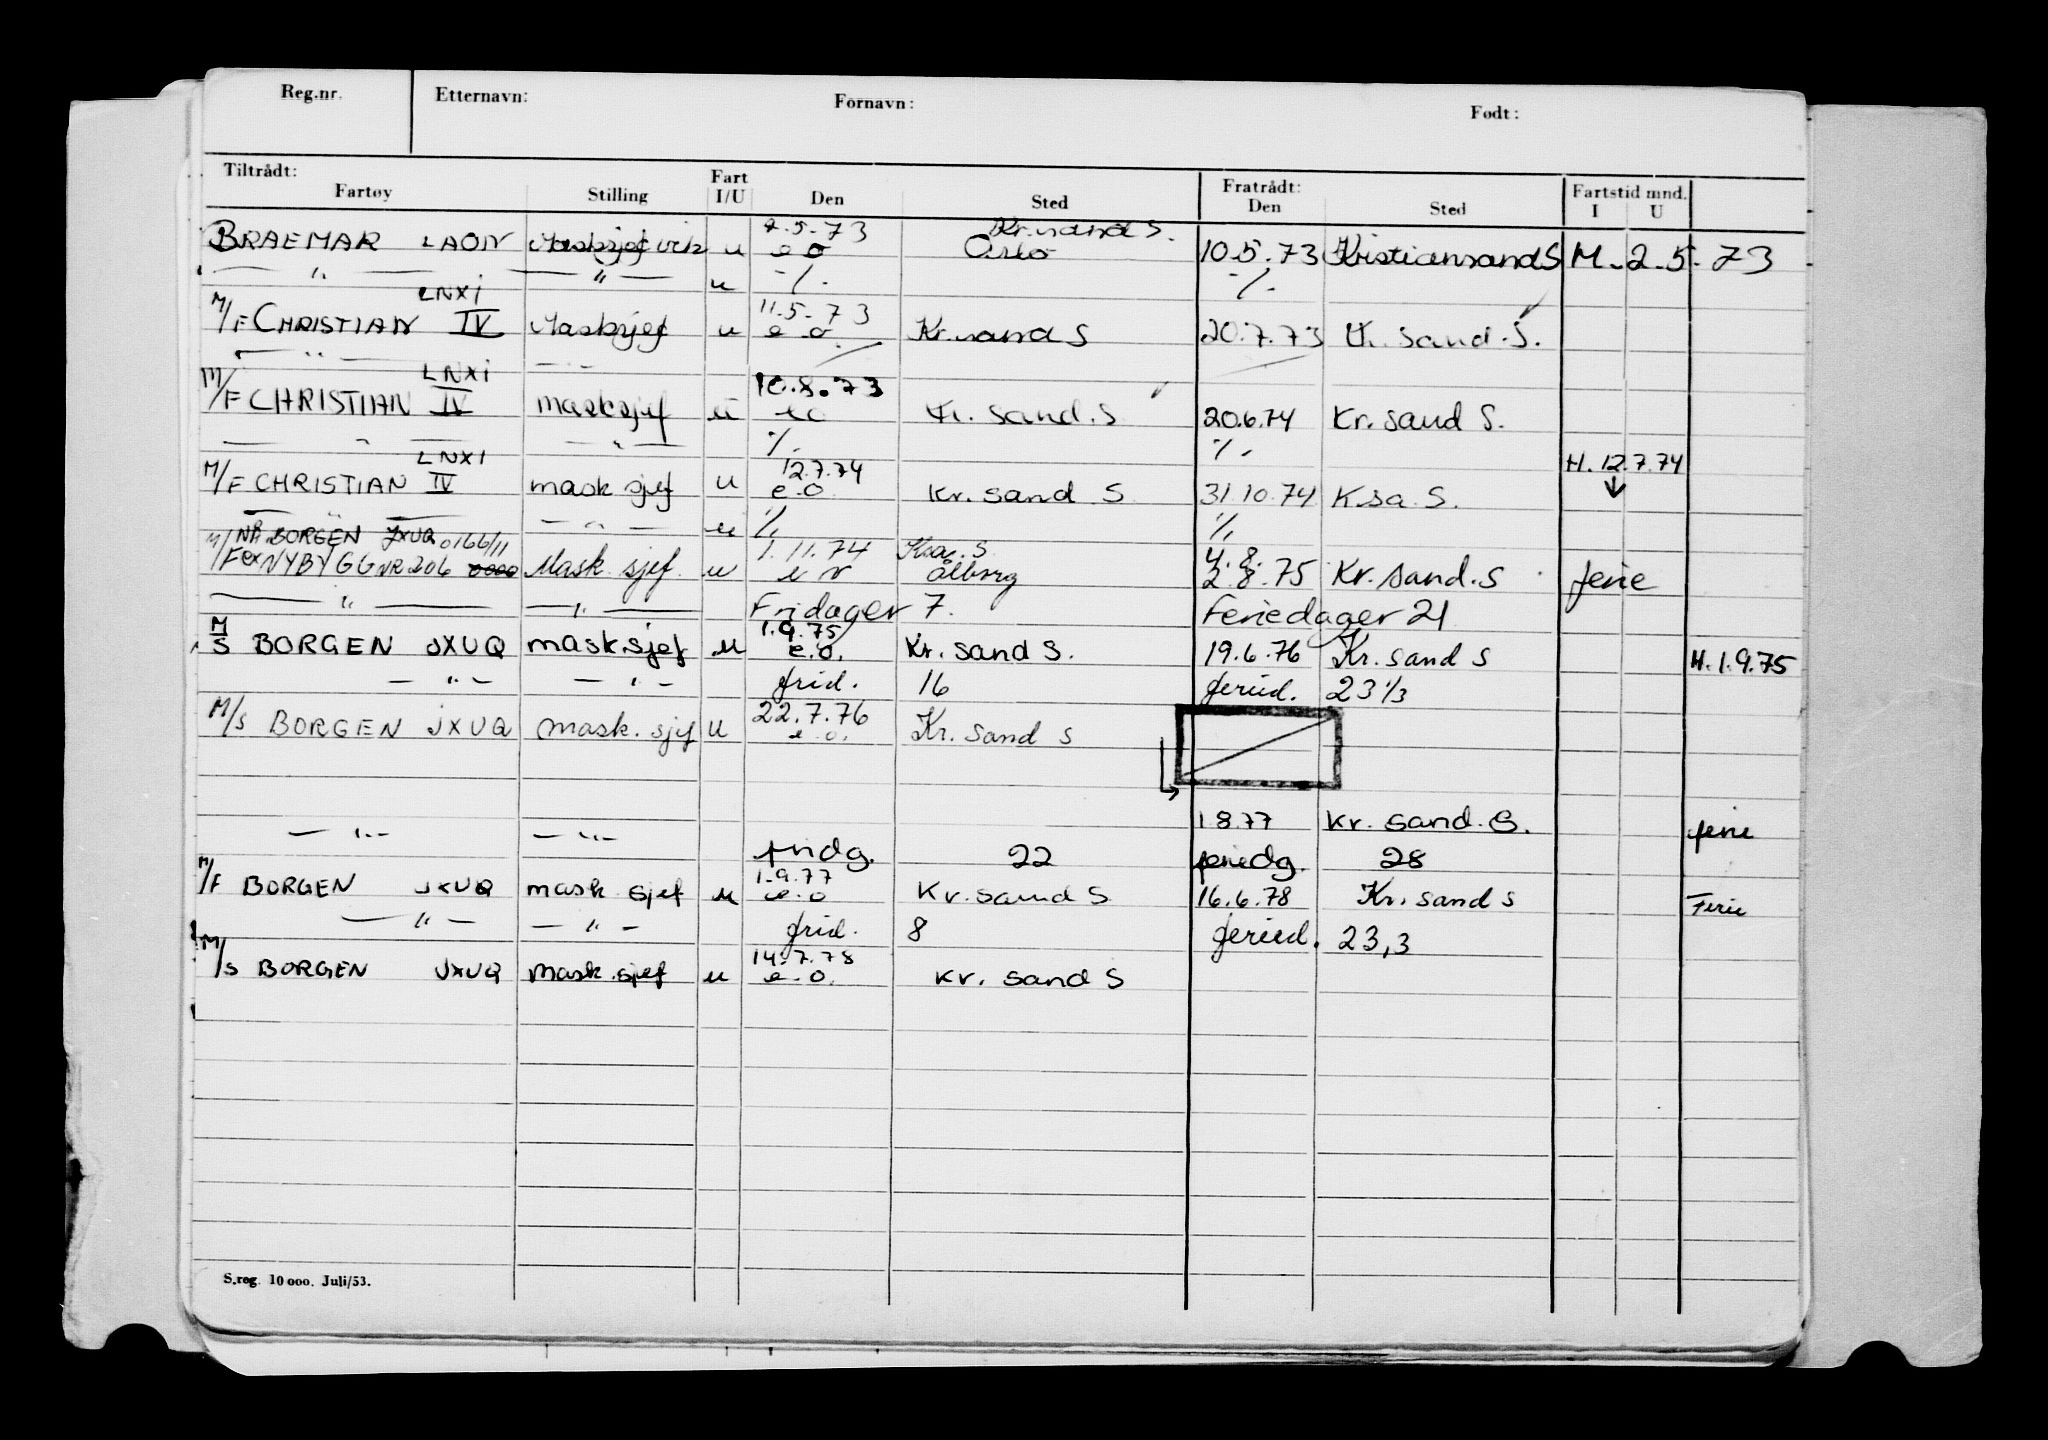 Reg.nr. Etternavn: Fornavn: Født:
Tiltrådt: Fart Fratrådt: Fartstid mnd.
Fartøy Stilling I/U Den Sted Den Sted I U
2.5.73 Kr.sand S.
BRAEMAR LAON Masksjef vik u e o Oslo 10.5.73 Kristiansand S M. 2.5.73
— " — — " — u -/. -/.
LNXI 11.5.73
M/F CHRISTIAN IV Masksjef u e o Kr.sand S 20.7.73 Kr. sand. S.
— " —
LNXI 10.8.73
M/F CHRISTIAN IV masksjef u eo Kr. sand. S 20.6.74 Kr. sand S.
— " — — " — ./. ./.
LNXI 12.7.74 H. 12.7.74
M/F CHRISTIAN IV mask sjef u e.o. Kr. sand S 31.10.74 K.sa. S.
— " — — " — u ./. ./.
NB BORGEN JXUQ 0166/11 1.11.74 Ksa. S 4.8.
M/F ex NYBYGG NR 206 Mask. sjef. u ålborg 2.8.75 Kr. sand. S ferie
— " — — " — Fridager 7. Feriedager 21
1.9.75
M/S BORGEN JXUQ mask.sjef u e.o. Kr. sand S. 19.6.76 Kr. sand S H. 1.9.75
— " — — " — frid. 16 feried. 23 1/3
22.7.76
M/S BORGEN JXUQ mask. sjef U e.o. Kr. sand S
1.8.77 Kr. sand. S. ferie
— " — — " — fridg. 22 feriedg. 28
1.9.77
M/F BORGEN JXUQ mask sjef u e.o Kr. sand S 16.6.78 Kr. sand S Ferie
— " — — " — frid. 8 feried. 23,3
14.7.78
M/S BORGEN JXUQ mask. sjef u e.o. Kr. sand S
S.reg. 10 000. Juli/53.